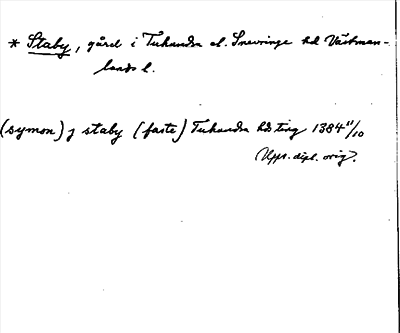 * Staby, gård i Tuhundra el. Snevringe hd Västman-
lands l.
(symon) j staby (faste) Tuhundra hds ting 1384 11/10
Upps. dipl. orig.